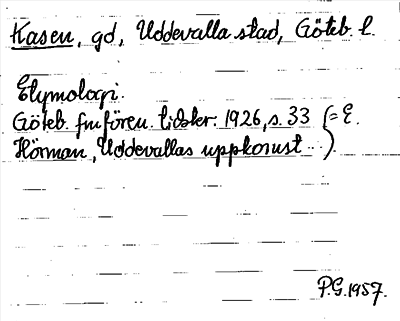 Kasen, gd, Uddevalla stad, Göteb. l.
Etymologi.
Göteb. fmfören. tidskr. 1926, s. 33 (=E.
Hörman, Uddevallas uppkomst ).
P.G. 1957.